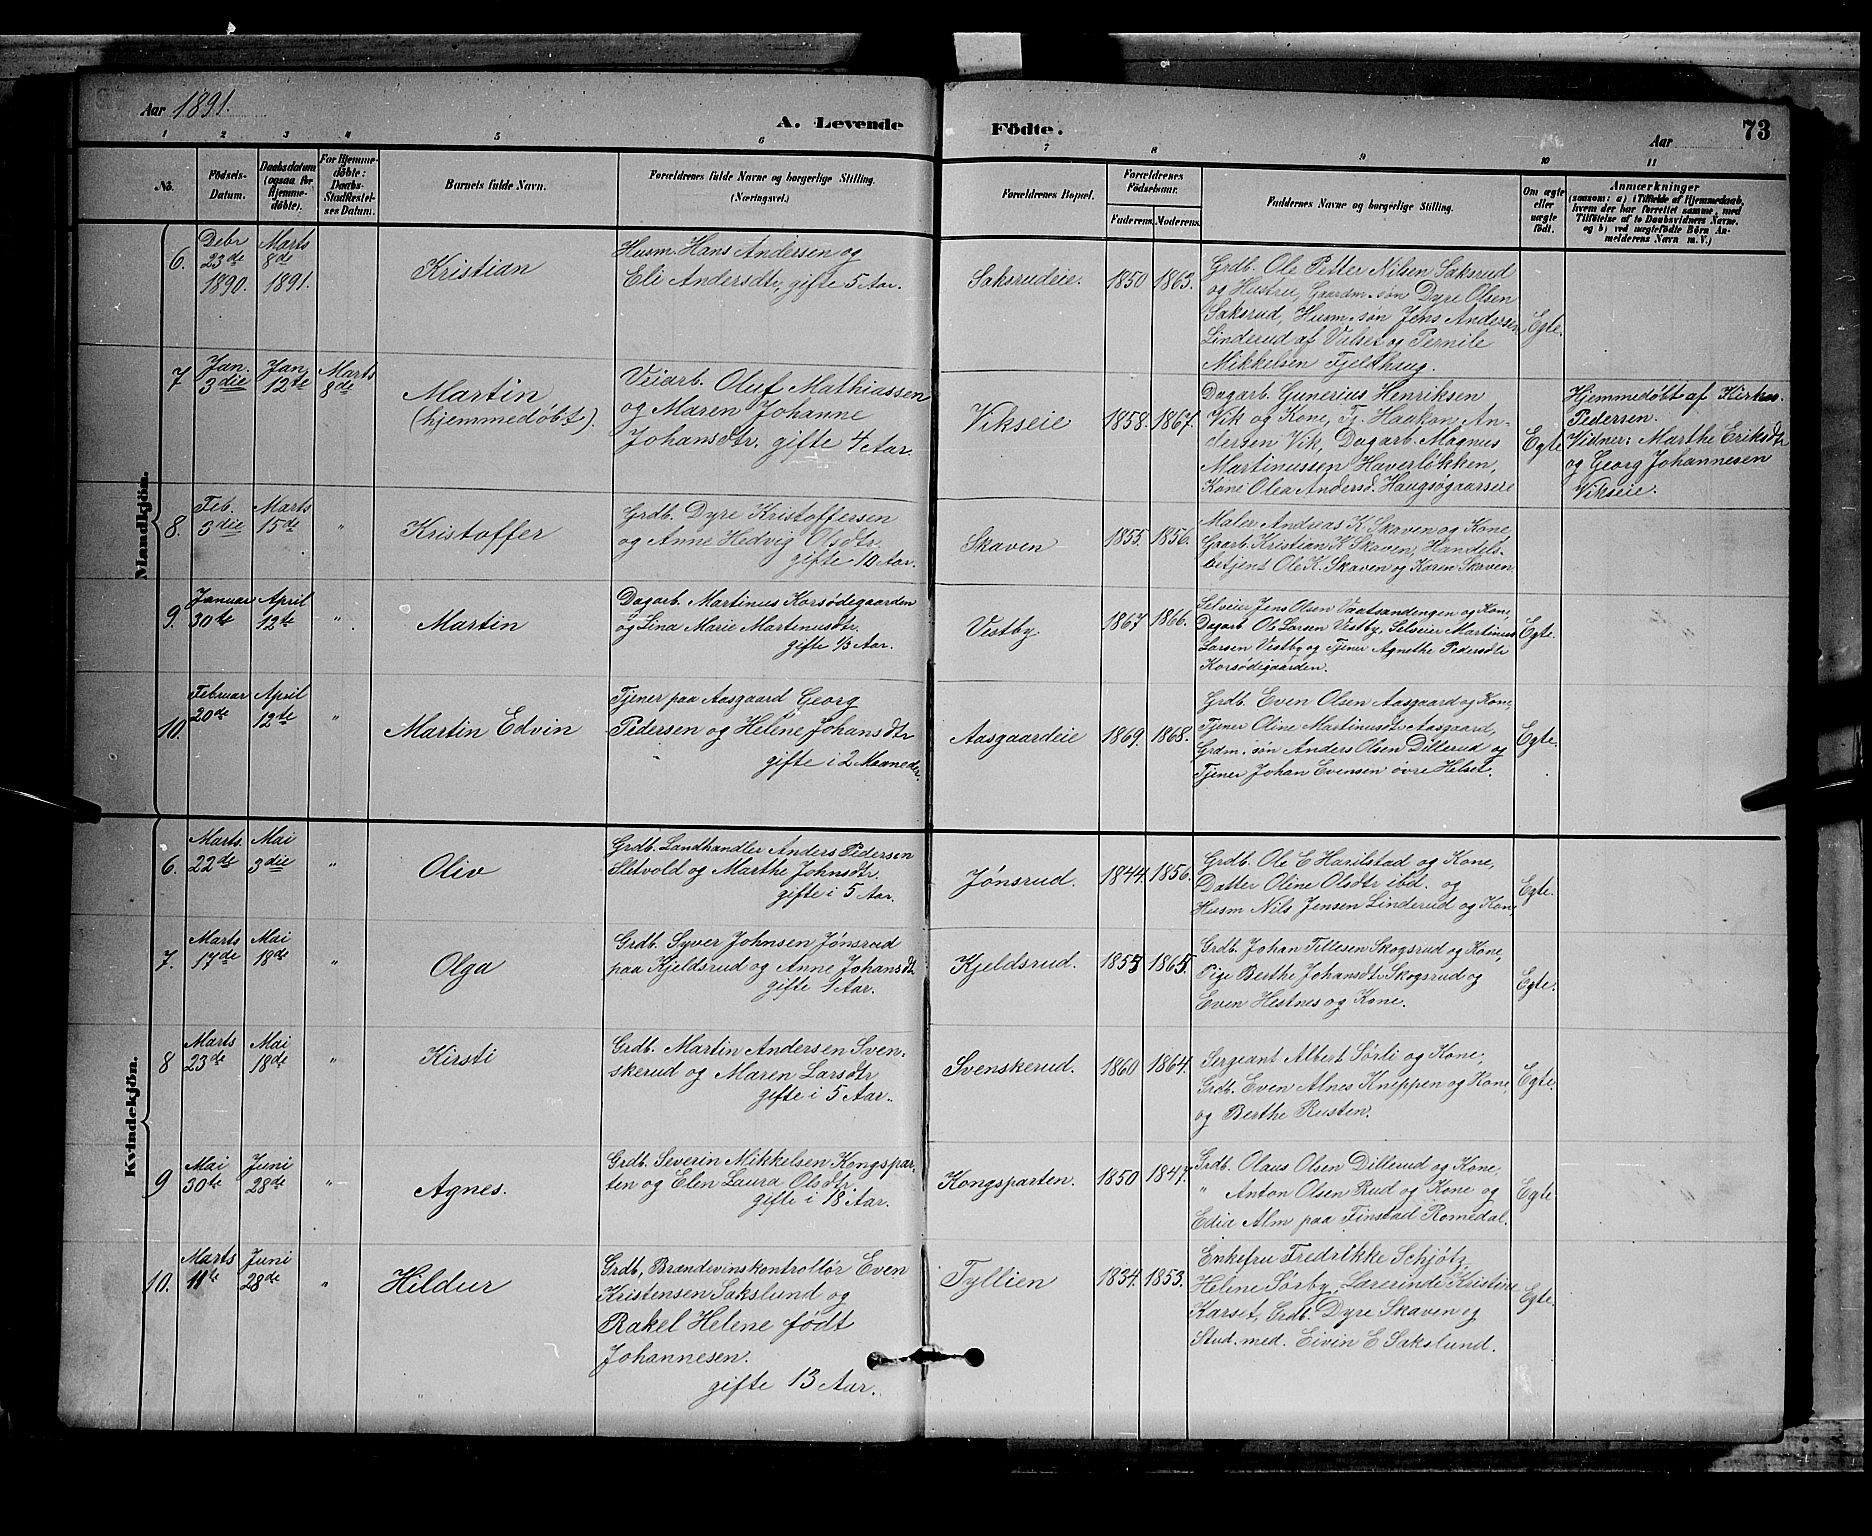 Aar 1891.
A. Levende
Födte.
Aar
73
1 2 3 4 5 6 7 8 9 10 11
No.
Födsels-
Datum.
Daabsdatum
(ogsaa for
Hjemme-
döbte).
For Hjemme-
döbte:
Daabs-
Stadfæstel-
ses Datum.
Barnets fulde Navn.
Forældrenes fulde Navne og borgerlige Stilling.
(Næringsvei.)
Forældrenes Bopæl.
Forældrenes
Födselsaar.
Faderens. Moderens.
Faddernes Navne og borgerlige Stilling.
Om ægte
eller
uægte
født.
Anmærkninger
(saasom: a) i Tilfælde af Hjemmedaab,
hvem der har forrettet samme, med
Tilföielse af to Daabsvidners Navne,
og b) ved uægtefödte Börn An-
melderens Navn m. V.)
Mandkjön.
6.
Debr
23de
1890.
Marts
8de
1891.
Kristian
Husm. Hans Andersen og
Eli Andersdtr, gifte 5 Aar.
Saksrudeie.
1850 1863.
Grdb. Ole Petter Nilsen Saksrud
og Hustru, Gaardm. søn Dyre Olsen
Saksrud, Husm. søn Jens Andersen
Linderud af Valset og Pernile
Mikkelsen Fjeldhaug.
Egte.
7
Jan.
3die
Jan.
12te
Marts
8de
Martin
(hjemmedøbt).
Veiarb. Oluf Mathiassen
og Maren Johanne
Johansdtr. gifte 4 Aar.
Vikseie
1858. 1867.
Dagarb. Gunerius Henriksen
Vik og Kone, Tj. Haakon An-
dersen Vik, Dagarb. Magnus
Martinussen Haverløkken,
Kone Olea Andersd. Haugsøgaarseie
Egte
Hjemmedøbt af Kirkes.
Pedersen.
Vidner: Marthe Eriksdtr
og Georg Johannesen
Vikseie.
8.
Feb.
3die
Marts
15de
"
Kristoffer
Grdb. Dyre Kristoffersen
og Anne Hedvig Olsdtr.
gifte 10 Aar.
Skaven
1855. 1856.
Maler Andreas K Skaven og Kone
Gaarb. Kristian K Skaven, Handels-
betjent Ole K. Skaven og Karen Skaven
9.
Januar
30te
April
12te
"
Martin
Dagarb. Martinus Korsødegaarden
og Lina Marie Martinusdtr.
gifte 1/3 Aar.
Vestby.
1867 1866.
Selveier Jens Olsen Vaatsandengen og Kone,
Dagarb. Ole Larsen Vestby, Selveier Martinus
Larsen Vestby og Tjener Agnethe Pedersdtr
Korsødegaarden.
Egte.
10.
Februar
20de
April
12te
"
Martin Edvin
Tjener paa Aasgaard Georg
Pedersen og Helene Johansdtr
gifte i 2 Maaneder.
Aasgaardeie
1869. 1868.
Grdb. Even Olsen Aasgaard og Kone,
Tjener Oline Martinusdtr Aasgaard,
Grdm. søn Anders Olsen Dillerud og
Tjener Johan Evensen øvre Helset.
Egte.
Kvindekjön.
6.
Marts.
22de
Mai
3die
"
Oliv
Grdb. Landhandler Anders Pedersen
Sletvold og Marthe Johnsdtr.
gifte i 5 Aar.
Jønsrud.
1844. 1856.
Grdb. Ole E Harilstad og Kone,
Datter Oline Olsdtr ibd. og
Husm Nils Jensen Linderud og Kone,
Egte.
7.
Marts
17de
Mai
18de
"
Olga
Grdb. Syver Johnsen Jønsrud
paa Kjeldsrud og Anne Johansdtr
gifte 1 Aar.
Kjeldsrud.
1853 1865.
Grdb. Johan Tillesen Skogsrud og Kone,
Pige Berthe Johansdtr Skogsrud og
Even Hestnes og Kone.
Egte.
8
Marts
23de
Mai
18de
"
Kirsti
Grdb. Martin Andersen Sven-
skerud og Maren Larsdtr
gifte i 5 Aar.
Svenskerud.
1860 1864.
Sergeant Albert Sørli og Kone.
Grdb. Even Alnes Knippen og Kone
og Berthe Rusten.
Egte.
9
Mai
30te
Juni
28de
"
Agnes.
Grdb. Severin Mikkelsen Kongspar-
ten og Elen Laura Olsdtr.
gifte i 18 Aar.
Kongsparten.
1850 1847.
Grdb. Olaus Olsen Dillerud og Kone,
" Anton Olsen Rud og Kone og
Edia Alm paa Finstad Romedal.
Egte
10.
Marts
11te
Juni
28de
"
Hildur
Grdb, Brændevinskontrollør Even
Kristensen Sakslund og
Rakel Helene født
Johannesen.
gifte 13 Aar.
Tyllien
1834. 1853.
Enkefru Fredrikke Schjøtz,
Helene Sørby, Lærerinde Kristine
Karset, Grdb. Dyre Skaven og
Stud. med. Eivin E Sakslund.
Egte.